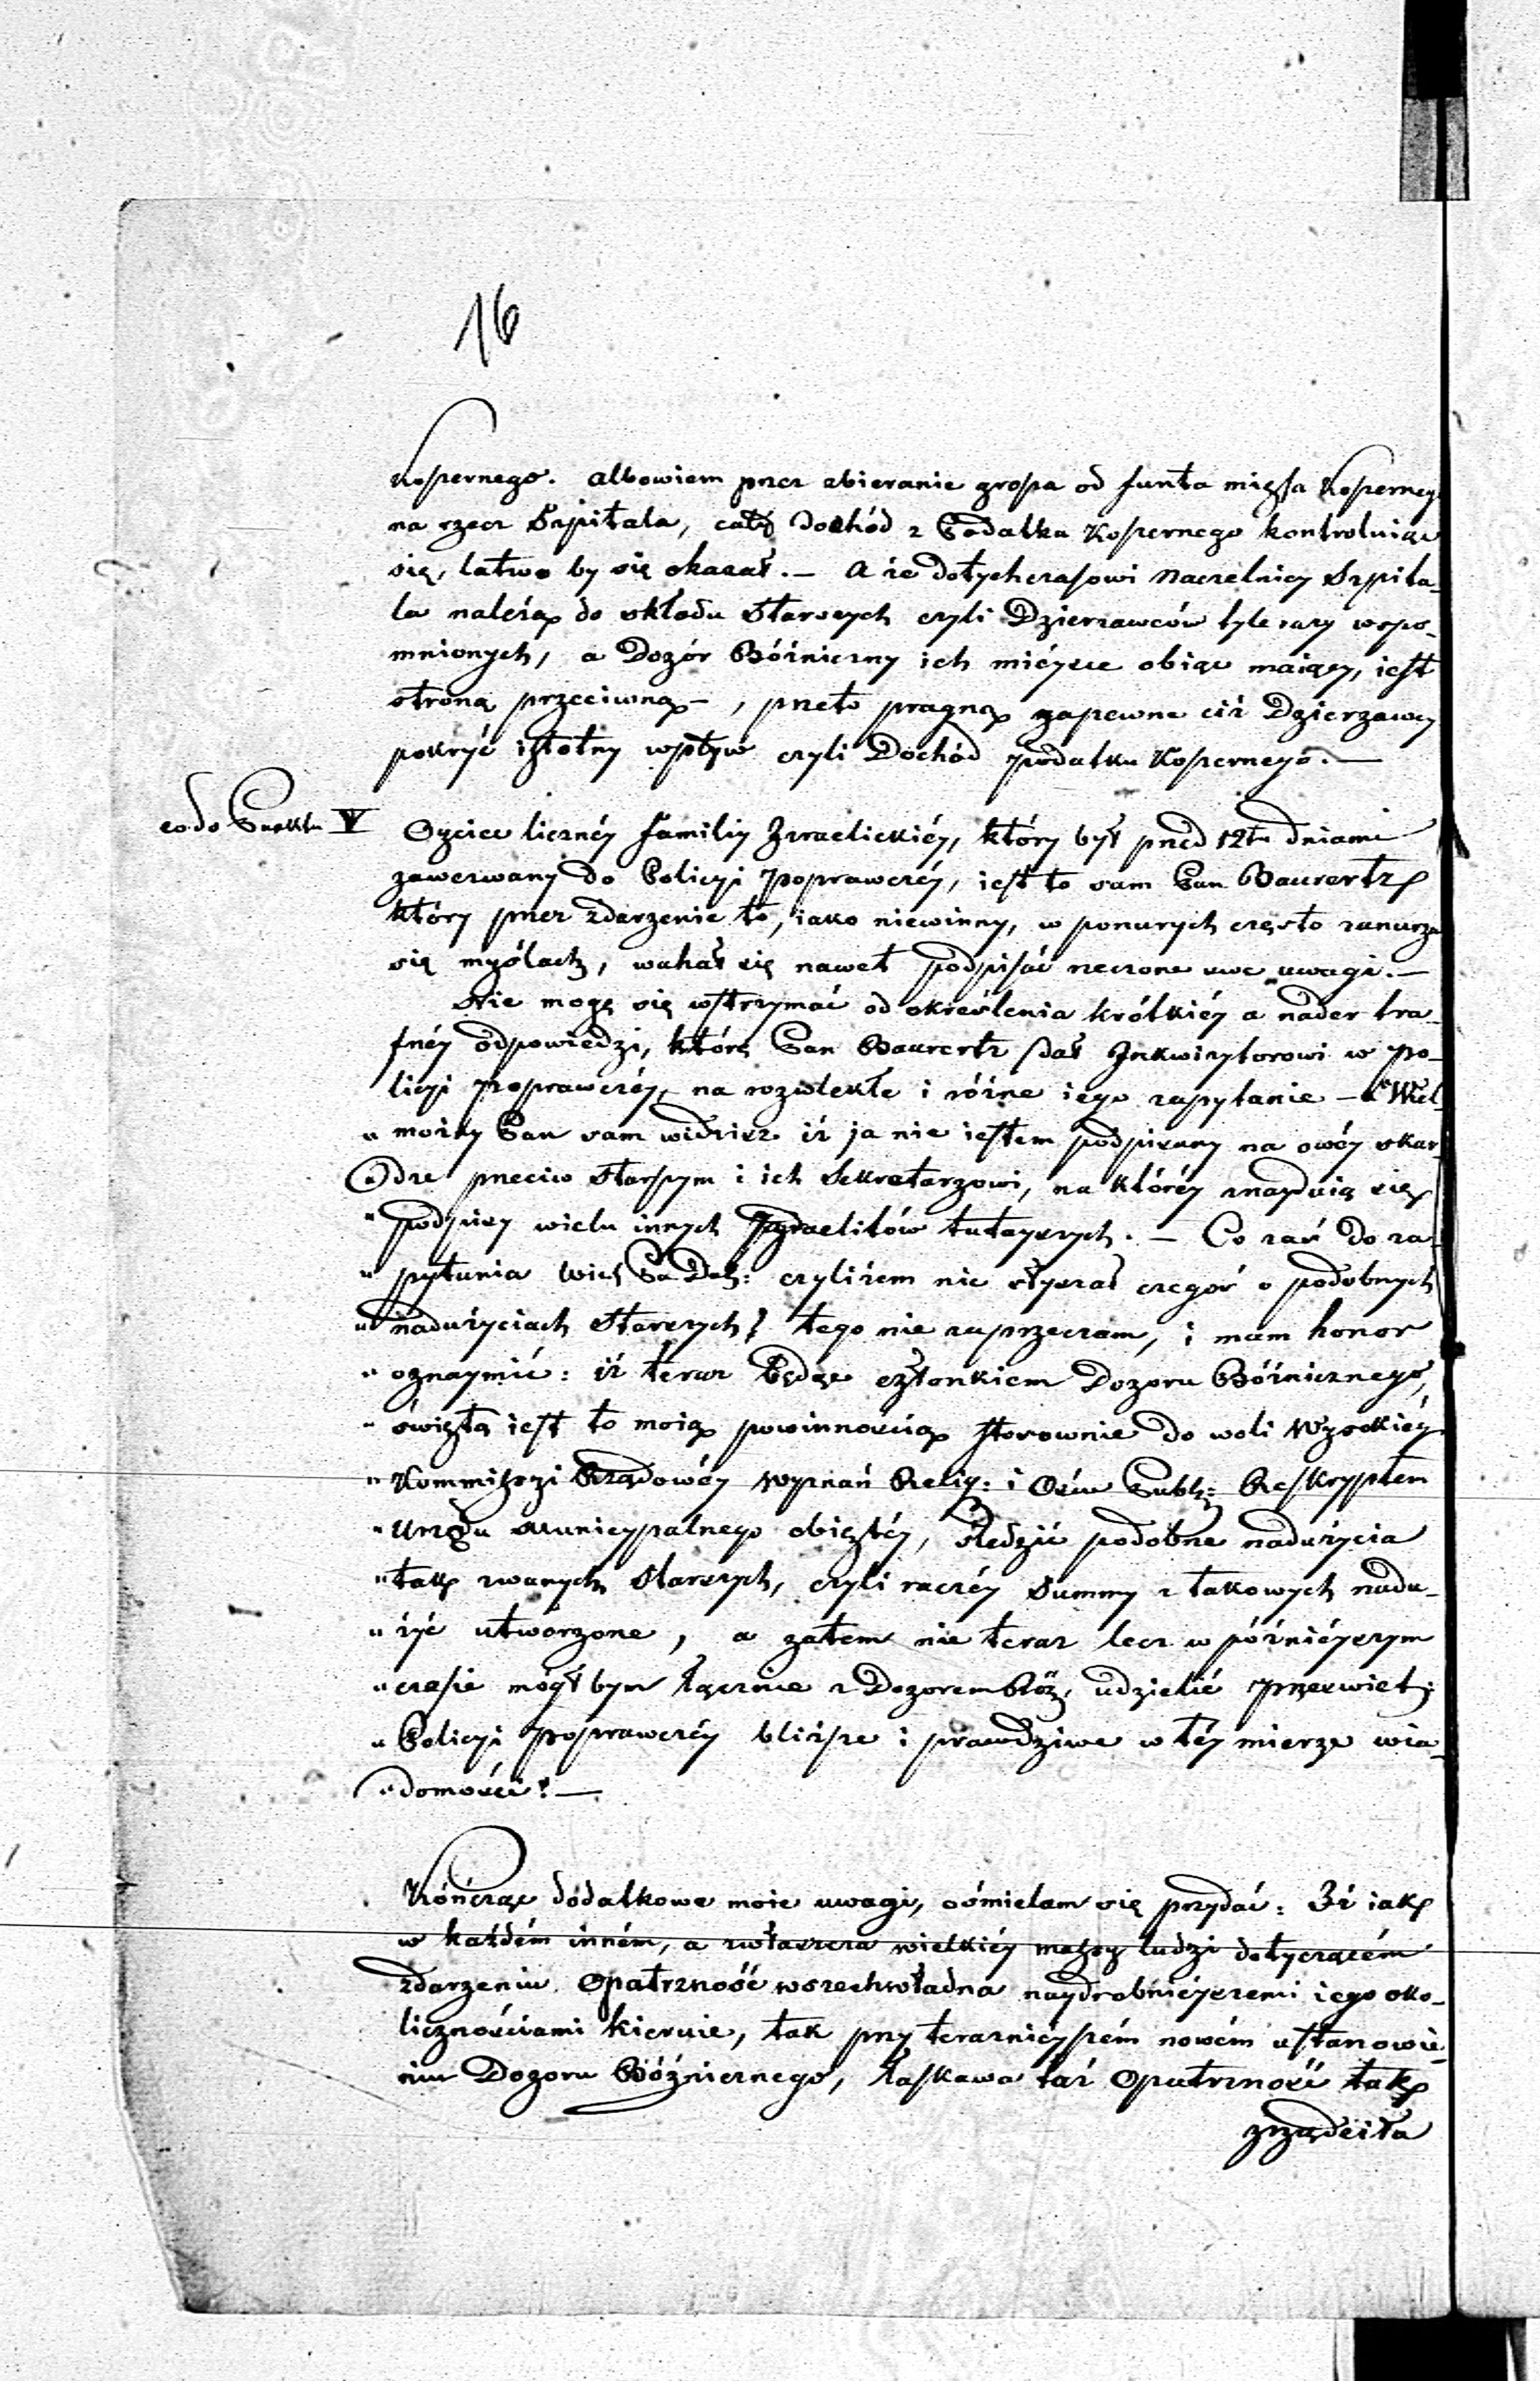 16
Kopernego. albowiem przez zbieranie grosza od funta mięsa Koperney
na rzecz Szpitala, cały dochód z Podatku Kopernego kontroluiąc
się, łatwo by się okazał. — A że dotychczasowi Naczelnicy Szpita-
la należą do składu Starszych czyli Dzierzawców tyle razy wspo-
mnionych, a Dozór Bóżniczny ich mieysce obiąć maiący, iest
stroną przeciwną —, przeto pragną zapewne ciż Dzierzawcy
pokryć istotny wpływ czyli Dochód podatku Kopernego. —
co do Punktu V Oyciec liczney familiy Izraelickiéy, który był przed 12tu dniami
zawezwany do Policyi poprawczéy, iest to sam Pan Baurertz
który przez zdarzenie to, iako niewinny, w ponurych często zanurza
się myślach, wahał się nawet podpisać rzeczone swe uwagi. —
Nie mogę się wstrzymać od określenia krótkiéy a nader tra-
fnéy odpowiedzi, którę Pan Baurertz dał Inkwizytorowi w Po-
licyi poprawczéy, na rozwlekłe i różne iego zapytanie — „Wiel-
„ możny Pan sam widzisz iż ja nie iestem podpisany na owéy skar-
„ dze przeciw Starszym i ich Sekretarzowi, na któréy znayduią się
„ podpisy wielu innych Izraelitów tutayszych. — Co zaś do za-
„ pytania Wiel Pa Dob: czyliżem nie słyszał czegoś o podobnych
„ nadużyciach Starszych? tego nie zaprzeczam, i mam honor
„ oznaymić: iż teraz będąc członkiem Dozoru Bóżnicznego,
„ świętą iest to moią powinnością stosownie do woli Wysokiéy
„ Kommissyi Rządowéy Wyznań Relig: i Ośw: Publ: Reskryptem
„ Urzędu Municypalnego obiętéy, śledzić podobne nadużycia
„ tak zwanych Starszych, czyli raczéy Summy z takowych nadu-
„ żyć utworzone, a zatem nie teraz lecz w póżniéyszym
„ czasie mógłbym łącznie z Dozorem Bóż, udzielić Przeświet:
„ Policyi Poprawczéy bliższe i prawdziwe w téy mierze wia-
„ domości! —
Kończąc dodatkowe moie uwagi, ośmielam się przydać: Iż iak
w każdém inném, a zwłaszcza wielkiéy massy ludzi dotyczącém
zdarzeniu Opatrzność wszechwładna naydrobnieyszemi iego oko-
licznościami kieruie, tak przy teraznieyszém nowém ustanowie-
niu Dozoru Bóżnicznego, łaskawa taż Opatrzność tak
zrządziła